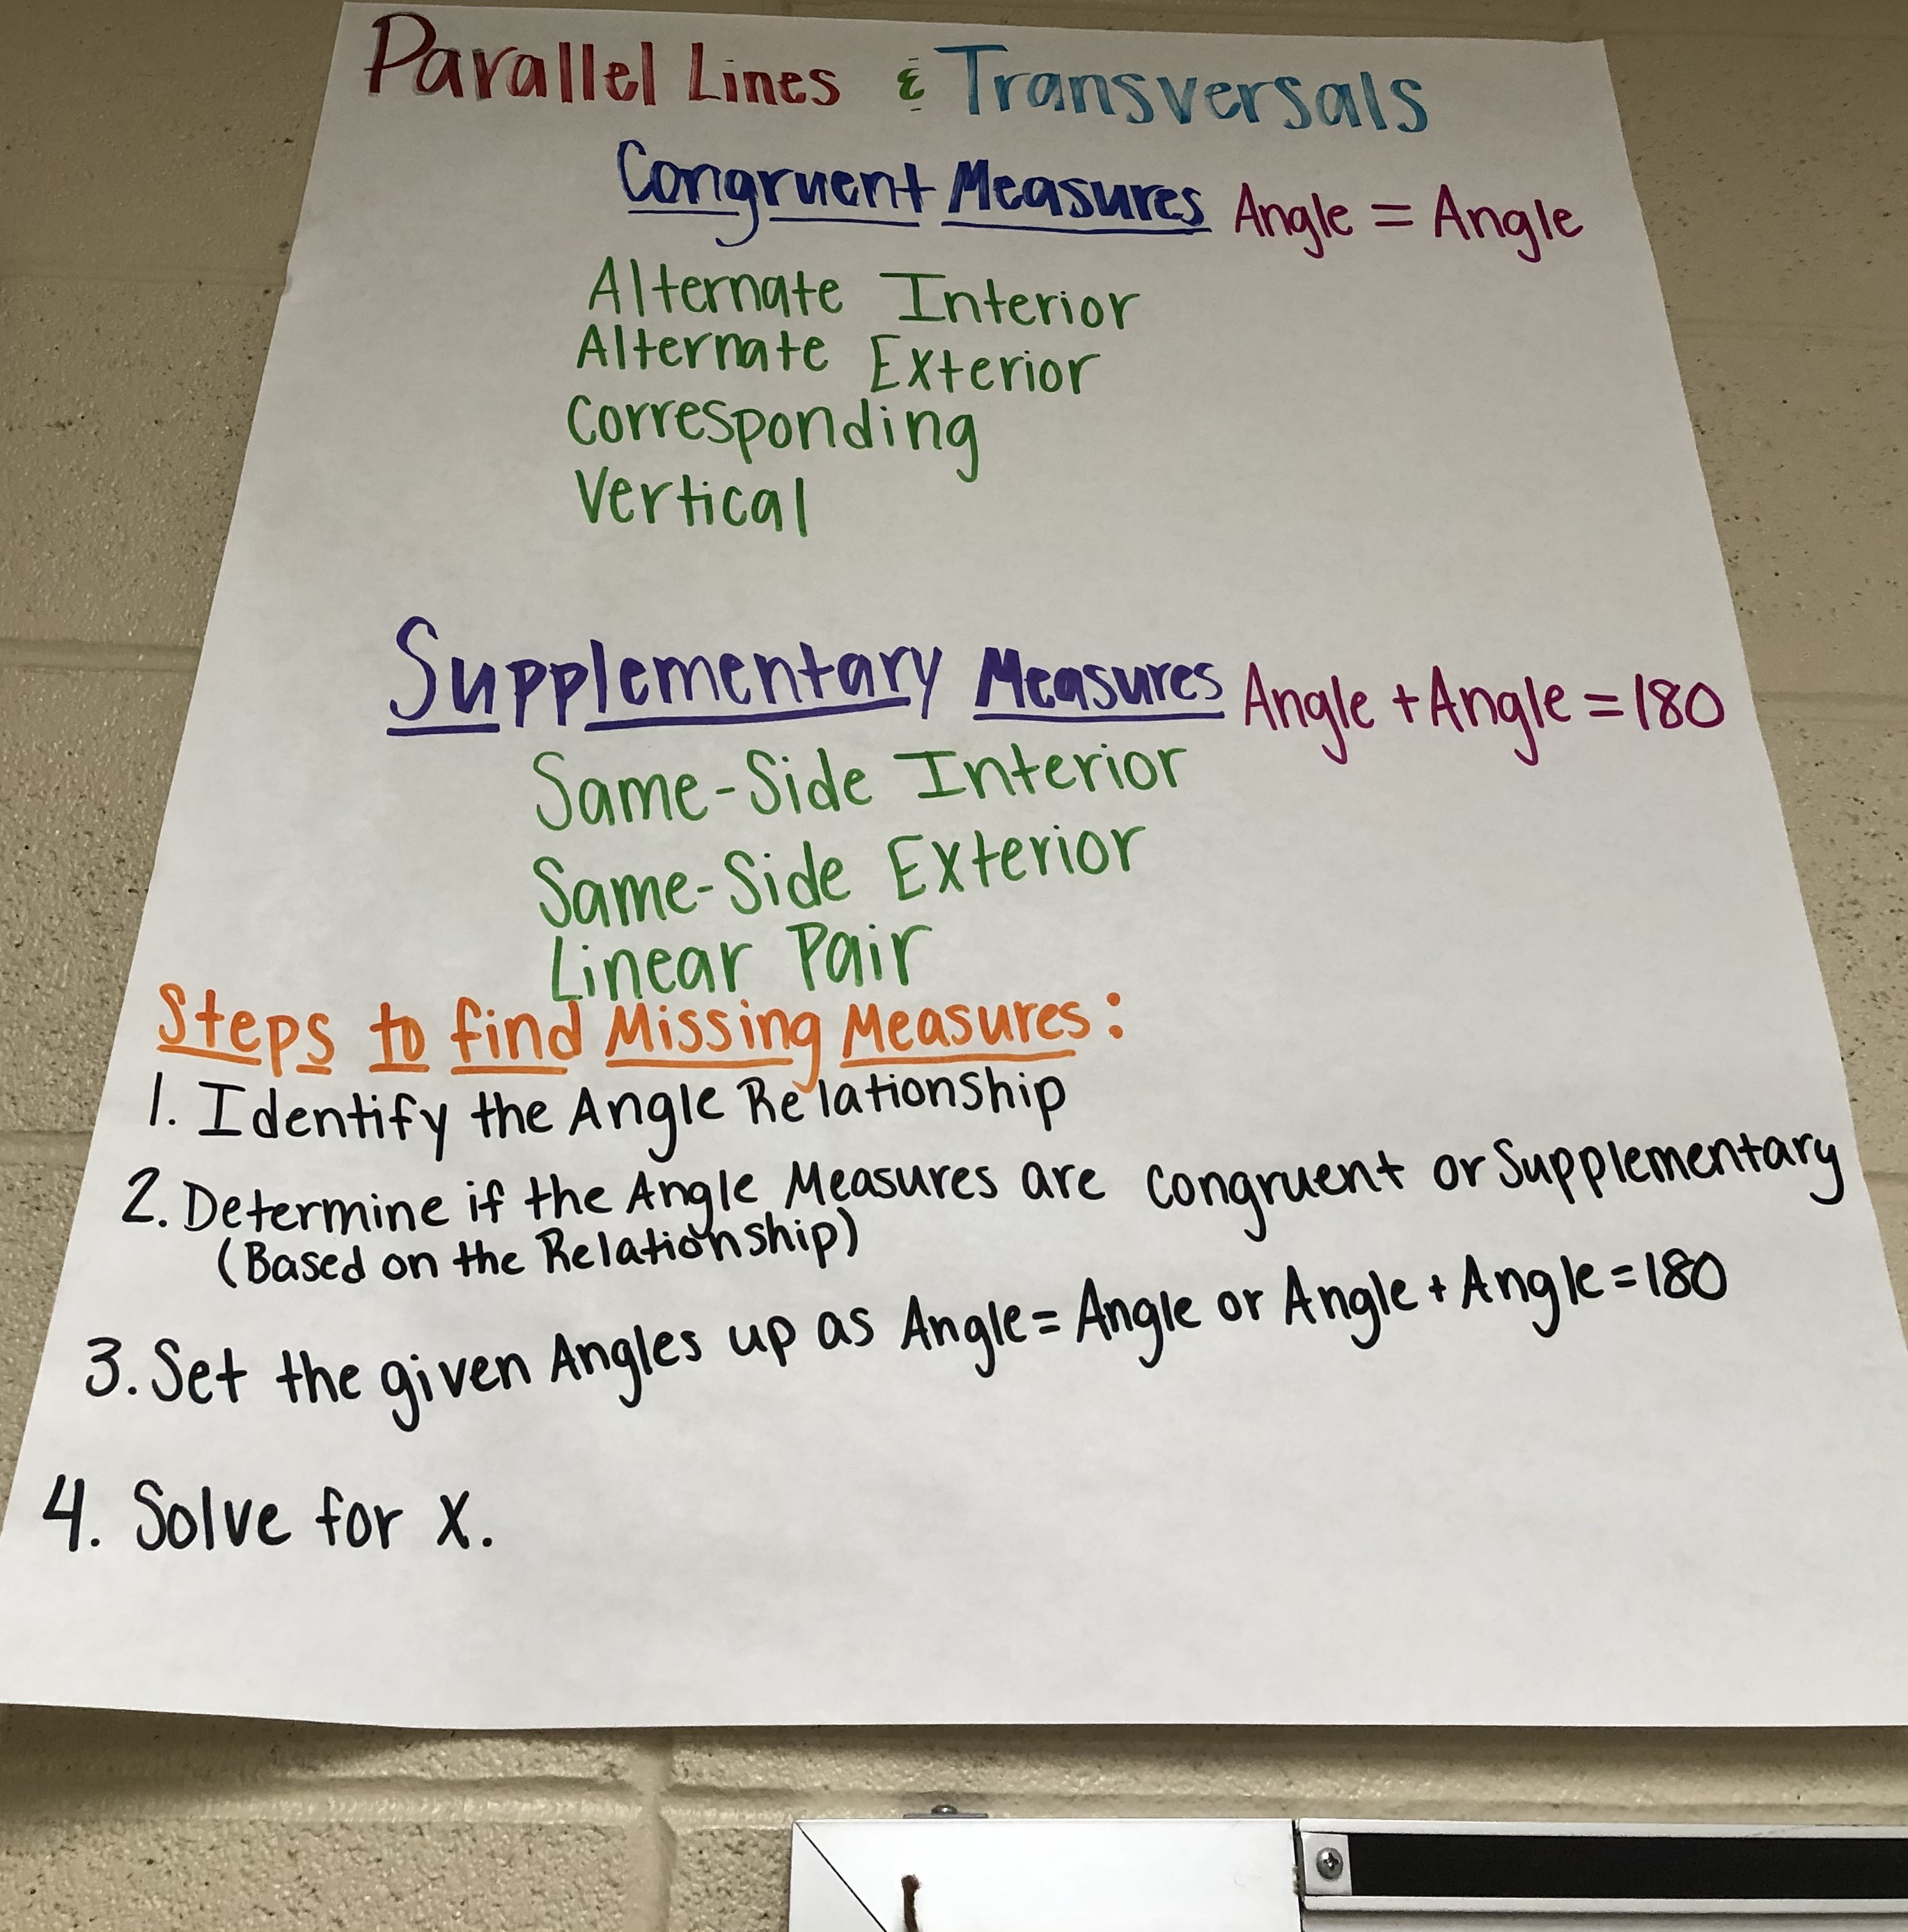 Parallel Lines & Transversals
Congruent Measures Angle = Angle
Alternate Interior
Alternate Exterior
Corresponding
Vertical
Supplementary Measures Angle + Angle = 180
Same-Side Interior
Same-Side Exterior
Linear Pair
Steps to find Missing Measures:
1. Identify the Angle Relationship
2. Determine if the Angle Measures are Congruent or Supplementary
(Based on the Relationship)
3. Set the given Angles up as Angle = Angle or Angle + Angle = 180
4. Solve for x.